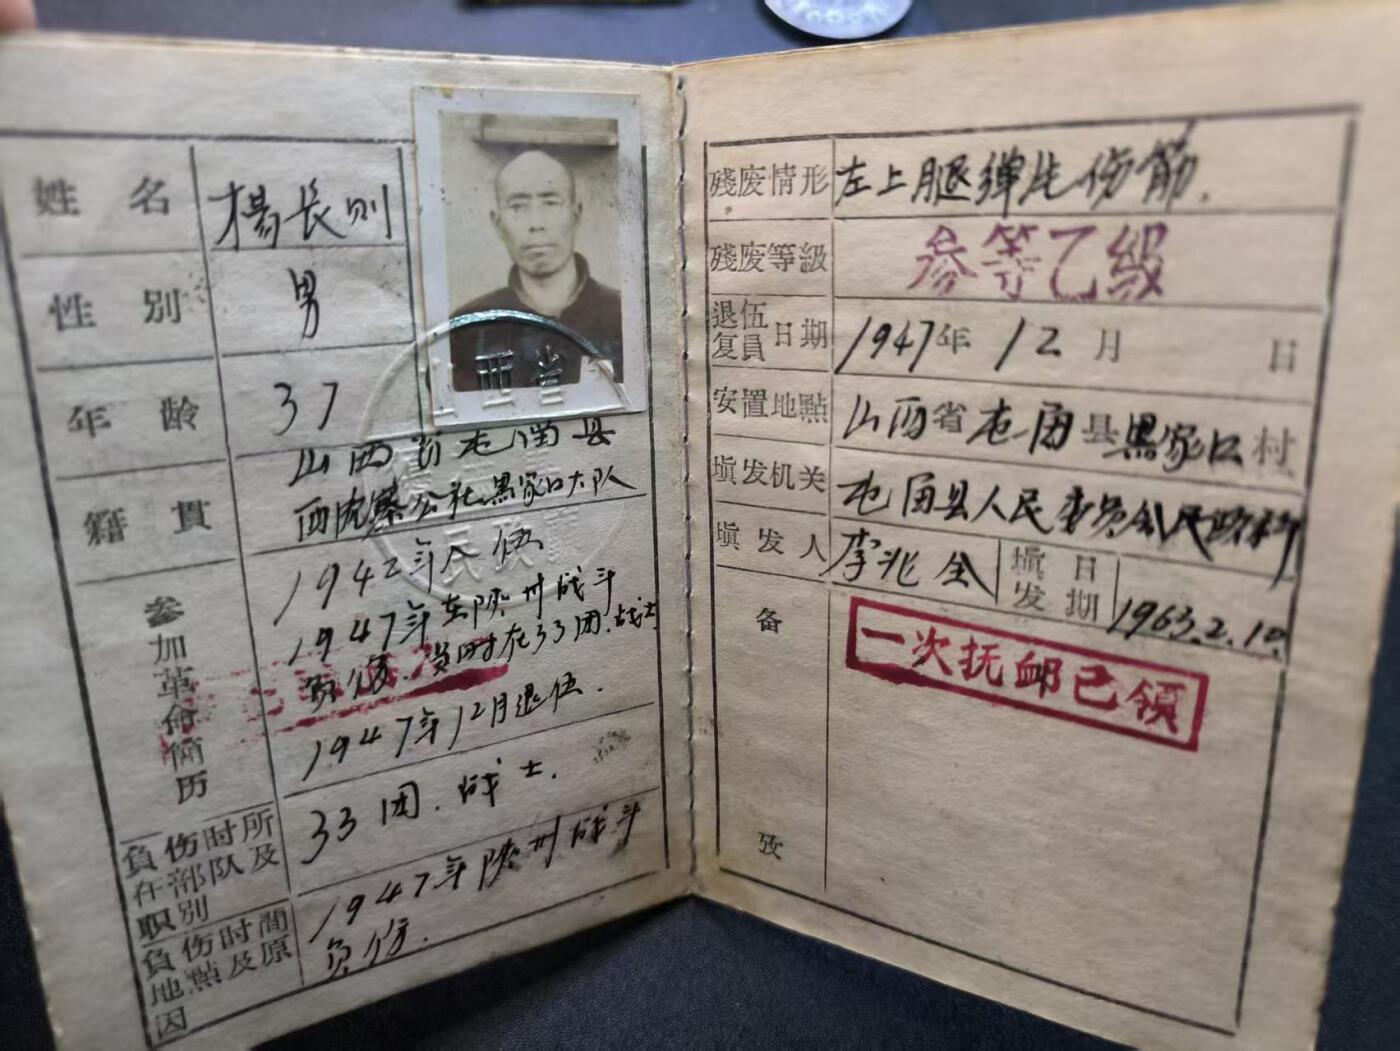 姓名 楊長則
性别 男
年龄 37
籍貫 山西省屯留县
西流寨公社黑家口大队
参加革命簡历 1942年入伍
1947年在陕州战斗
負伤.負时在33团.战士
1947年12月退伍.
負伤时所在部队及职别 33团.战士.
負伤时間地點及原因 1947年陕州战斗
負伤.
山西省
民政
殘废情形 左上腿弹片伤筋.
殘废等級 叁等乙級
退伍复員日期 1947年12月 日
安置地點 山西省屯留县黑家口村
塡发机关 屯留县人民委员会民政科
塡发人 李兆全 塡发日期 1963.2.10.
备攷 一次抚卹已領